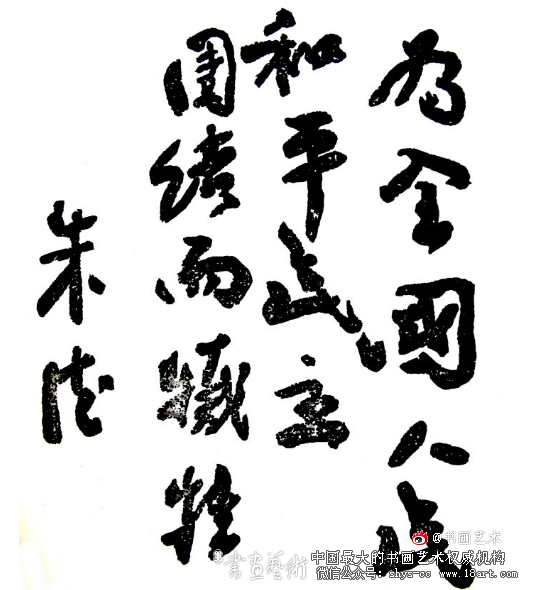 为全國人民
和平民主
團結而犧牲
朱德
@书画艺术
書画藝術
中国最大的书画艺术权威机构
微信公众号: shys-cc www.18art.com